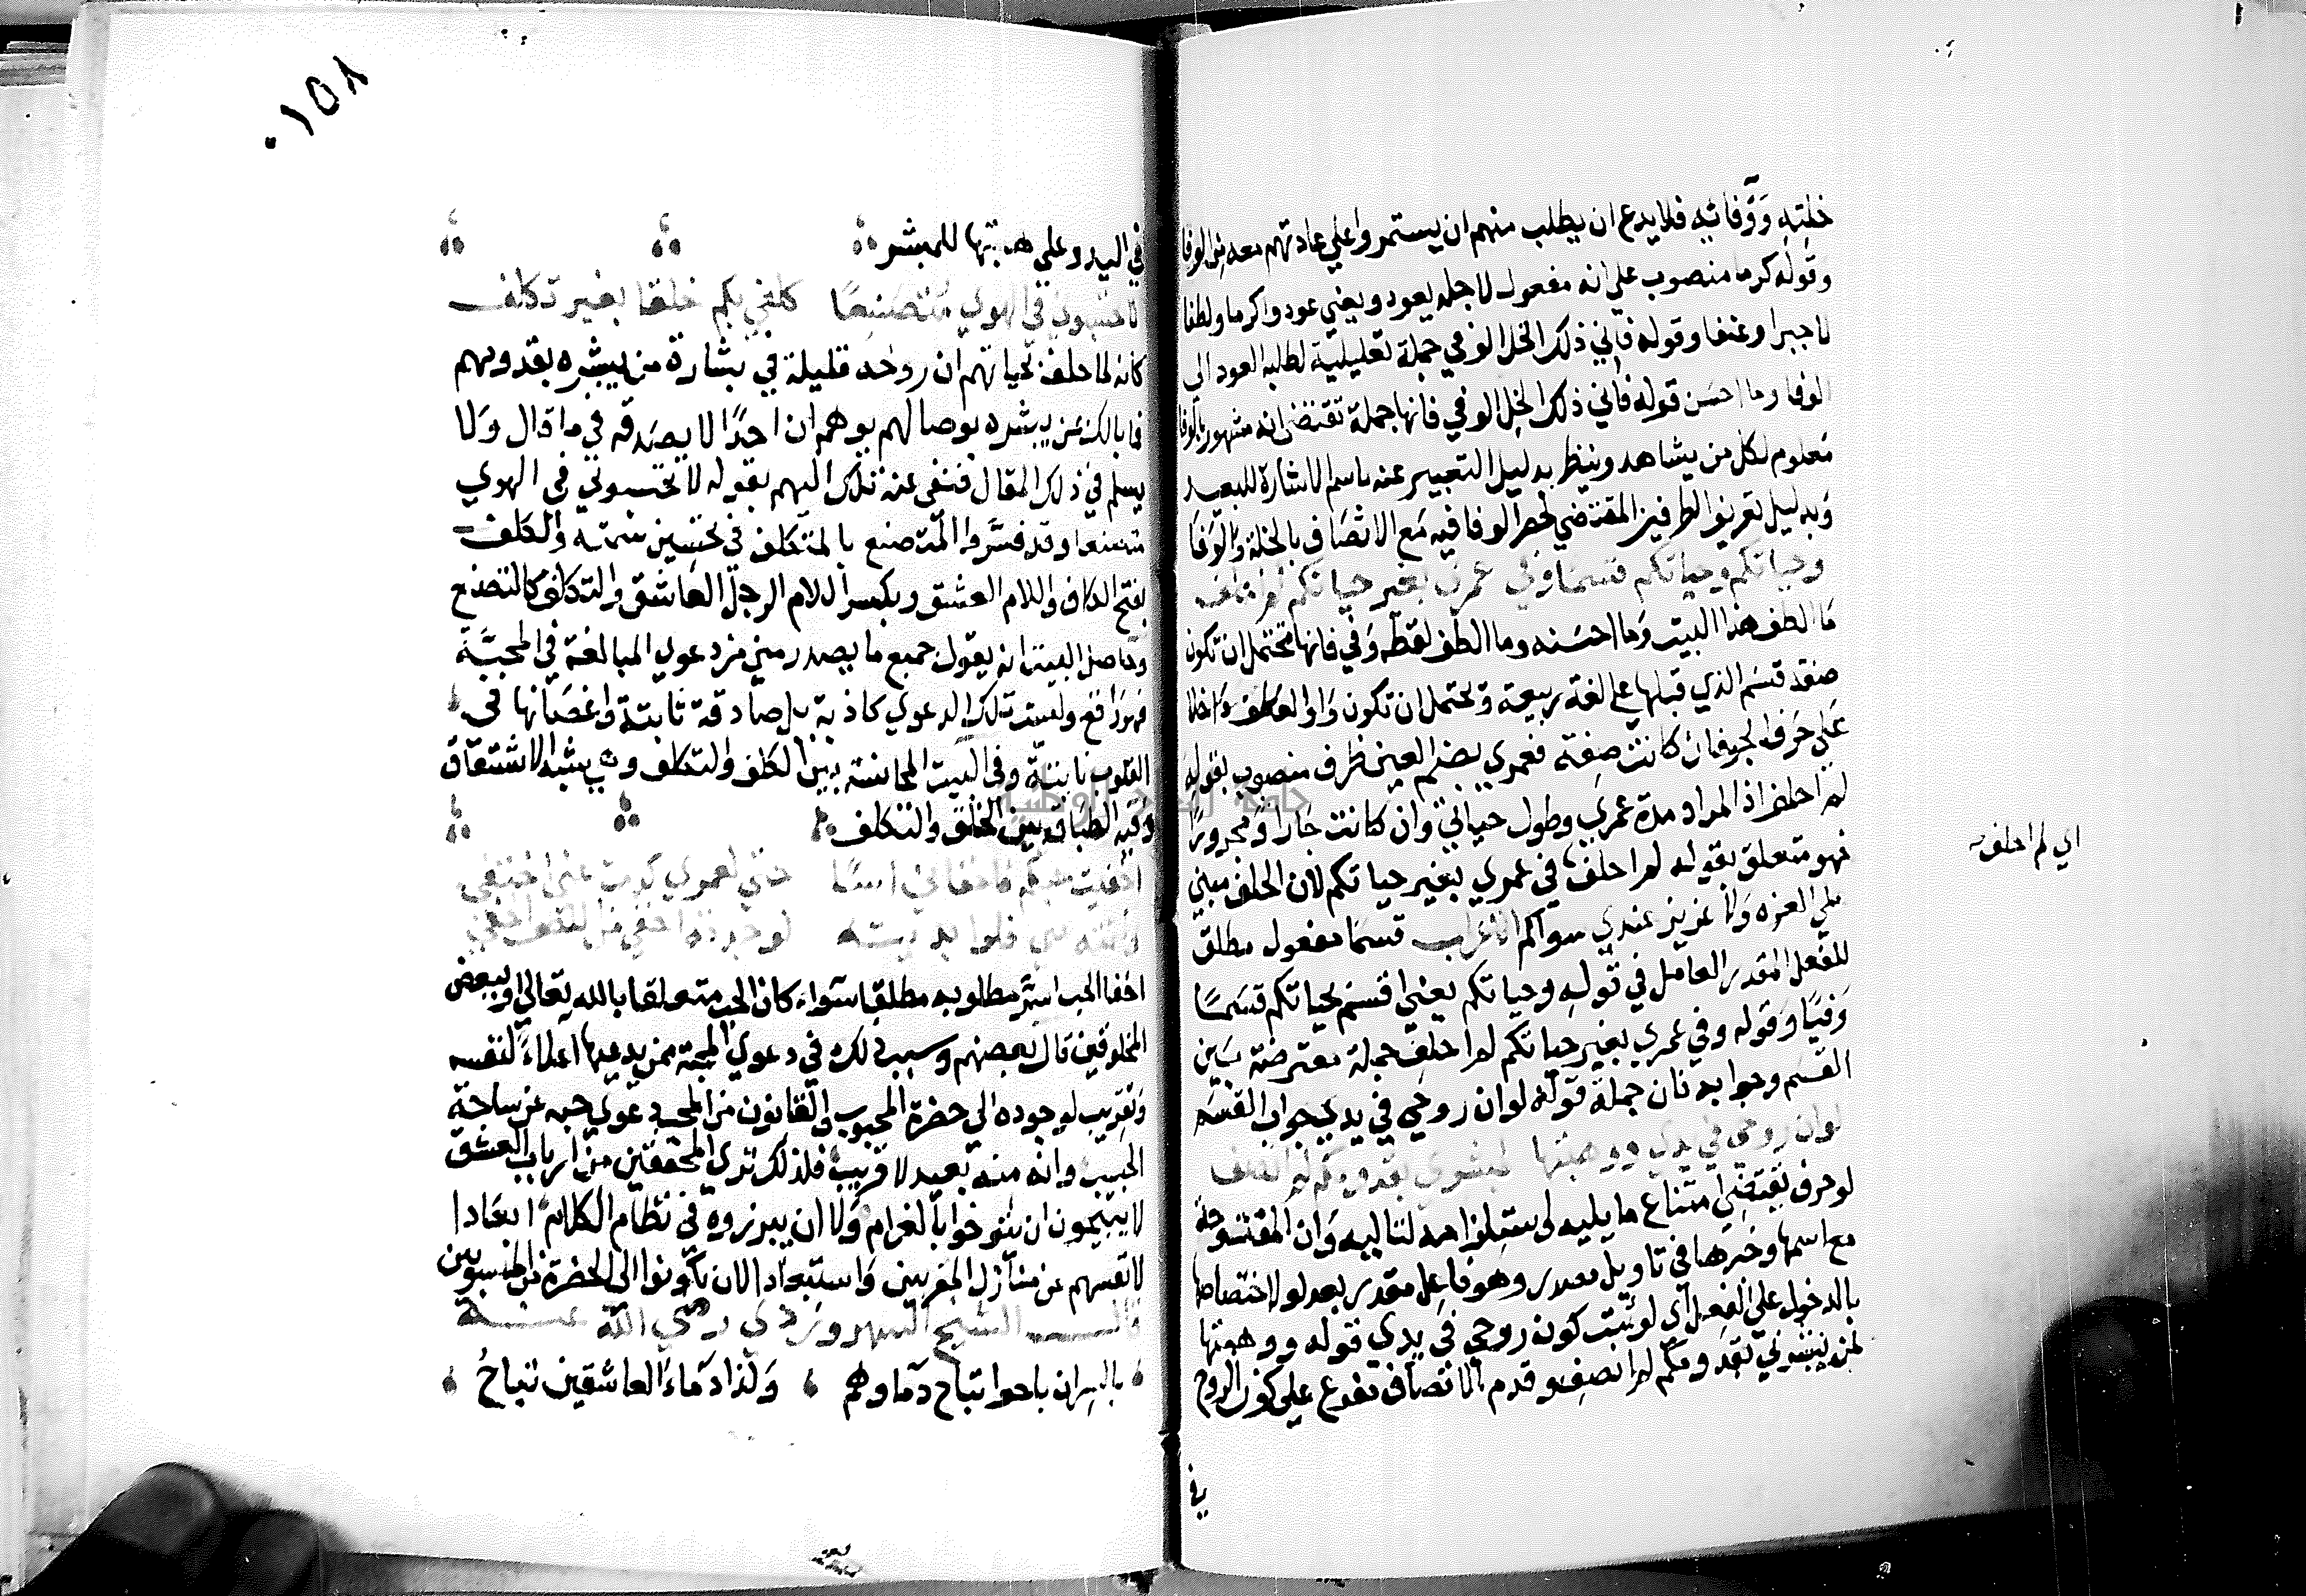 خلته ووفائه فلا بدع ان يطلب منهم ان يستمروا علي عادتهم معه من الوفا
وقوله كرما منصوب علي انه مفعول لاجله يعود ويعني عودوا كرما ولطفا
لا جبرا وعنفا وقوله فاني ذلك الخل الوفي جملة تعليلية لطلبه العود الي
الوفا وما احسن قوله فاني ذلك الخل الوفي فانها جملة تقتضي انه مشهور بالوفا
معلوم لكل من يشاهد وينظر بدليل التعبير عنه باسم الاشارة للبعيد
وبدليل تعريف الطرفين المقتضي لحصر الوفا فيه مع الاتصاف بالخلة والوفا
وحياتكم وحياتكم قسما وفي عمري بغير حياتكم لم احلف
ما الطف هذا البيت وما احسنه وما الطف لفظه وفي فانها تحتمل ان تكون
صفة قسم الذي قبلها علي لغة ربيعة وتحتمل ان تكون واو العطف داخلا
علي حرف الجر فان كانت صفة فعمري بضم العين ظرف منصوب بقوله
لم احلف اذ المراد مدة عمري وطول حياتي وان كانت جارا ومجرورا
فهو متعلق بقوله لم احلف في عمري بغير حياتكم لان الحلف مبني
علي العزه ولا عزيز عندي سواكم الاعراب قسما مفعول مطلق
للفعل المقدر العامل في قوله وحياتكم يعني اقسم بحياتكم قسما
وفيا وقوله وفي عمري بغير حياتكم لم احلف جملة معترضة بين
القسم وجوابه فان جملة قوله لو ان روحي في يدي جواب القسم
لو ان روحي في يدي ووهبتها لمبشري بقدومكم لم انصف
لو حرف يقتضي امتناع ما يليه واستلزامه لتاليه وان المفتوحة
مع اسمها وخبرها في تاويل مصدر وهو فاعل مقدر بعد لو لاختصاصها
بالدخول علي الفعل اي لو ثبت كون روحي في يدي قوله ووهبتها
لمن يبشرني بقدومكم لم انصف وعدم الانصاف مفرع علي كون الروح
في
اي لم احلف
١٥٨
في اليد وعلي هبتها للمبشر
لا تحسبوني في الهوي متصنعا كلفي بكم خلقا بغير تكلف
كانه لما حلف بحياتهم ان روحه قليلة في بشارة من يبشره بقدومهم
فما بالك بمن يبشره بوصالهم يوهم ان احدا لا يصدقه في ما قال ولا
يسلم في ذلك المقال فنفي عنه تلك التهم بقوله لا تحسبوني في الهوي
متصنعا وقد فسروا المتصنع بالمتكلف في تحسين سمته والكلف
بفتح الكاف واللام العشق وبكسر اللام الرجل العاشق والتكلف كالتصنع
وحاصل البيت انه يقول جميع ما يصدر مني من دعوي المبالغة في المحبة
فهو واقع وليست تلك الدعوي كاذبة بل صادقة ثابتة واغصانها في
القلوب نابتة وفي البيت المجانسة بين الكلف والتكلف وهي شبه الاشتقاق
وفيه الطباق بين الخلق والتكلف
اخفيت حبكم فاخفاني اسا حتي لعمري كدت عني اختفي
وكتمته عني فلو ابديته لوجدته اخفي من اللطف الخفي
اخفا الحب استر مطلوب مطلقا سواء كان الحب متعلقا بالله تعالي او ببعض
المخلوقين قال بعضهم وسبب ذلك في دعوي المحبة ممن يدعيها اعلاء لنفسه
وتقريب لوجوده الي حضرة المحبوب والقانون من المحب دعوي حبه عن ساحة
الحبيب وانه منه بعيد لا قريب فلذلك تري المحققين من ارباب العشق
لا يبيحون ان ينوخوا بالغرام ولا ان يبرزوه في نظام الكلام ابعادا
لانفسهم عن منازل المقربين واستبعادا لان يكونوا الي الحضرة من المنسوبين
قال الشيخ السهروردي رضي الله عنه
بالسران باحوا تباح دماوهم وكذا دماء العاشقين تباح